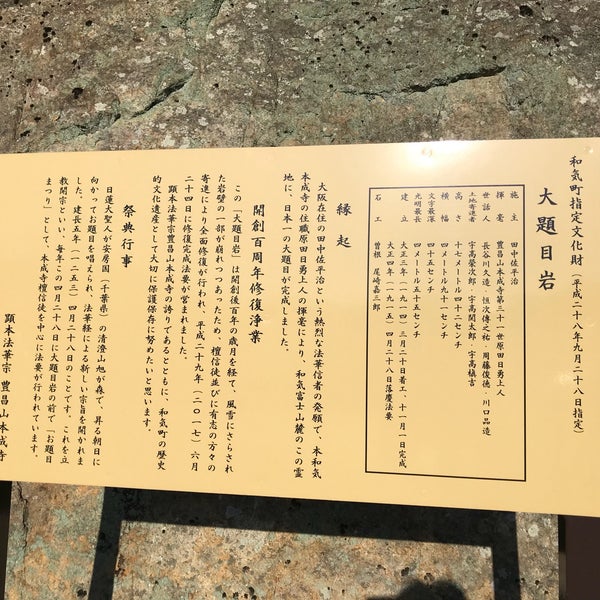 和気町指定文化財（平成二十八年九月二十八日指定）
大題目岩
施主 田中佐平治
揮毫 豊昌山本成寺第三十一世原田日勇上人
世話人 長谷川久造・恒次傳之祐・周藤俊徳・川口品造
土地寄進者 宇高槃次郎・宇高関太郎・宇高槙吉
高さ 十七メートル四十二センチ
横幅 四メートル九十一センチ
文字最深 四十五センチ
光明最長 四メートル五十五センチ
建立 大正三年（一九一四）三月二十日着工、十一月一日完成
大正四年（一九一五）四月二十八日落慶法要
石工 曽根 尾崎嘉三郎
縁起
大阪在住の田中佐平治という熱烈な法華信者の発願で、本和気
本成寺の住職原田日勇上人の揮毫により、和気富士山麓のこの霊
地に、日本一の大題目が完成しました。
開創百周年修復浄業
この「大題目岩」は開創後百年の歳月を経て、風雪にさらされ
た岩壁の一部が崩れつつあったため、檀信徒並びに有志の方々の
寄進により全面修復が行われ、平成二十九年（二〇一七）六月
二十四日に修復完成法要が営まれました。
顕本法華宗豊昌山本成寺の誇りであるとともに、和気町の歴史
的文化遺産として大切に保護保存に努めたいと思います。
祭典行事
日蓮大聖人が安房国（千葉県）の清澄山旭が森で、昇る朝日に
向かってお題目を唱えられ、法華経による新しい宗旨を開かれま
した。建長五年（一二五三）四月二十八日のことです。これを立
教開宗といい、毎年この四月二十八日に大題目岩の前で「お題目
まつり」として、本成寺檀信徒を中心に法要が行われています。
顕本法華宗 豊昌山本成寺